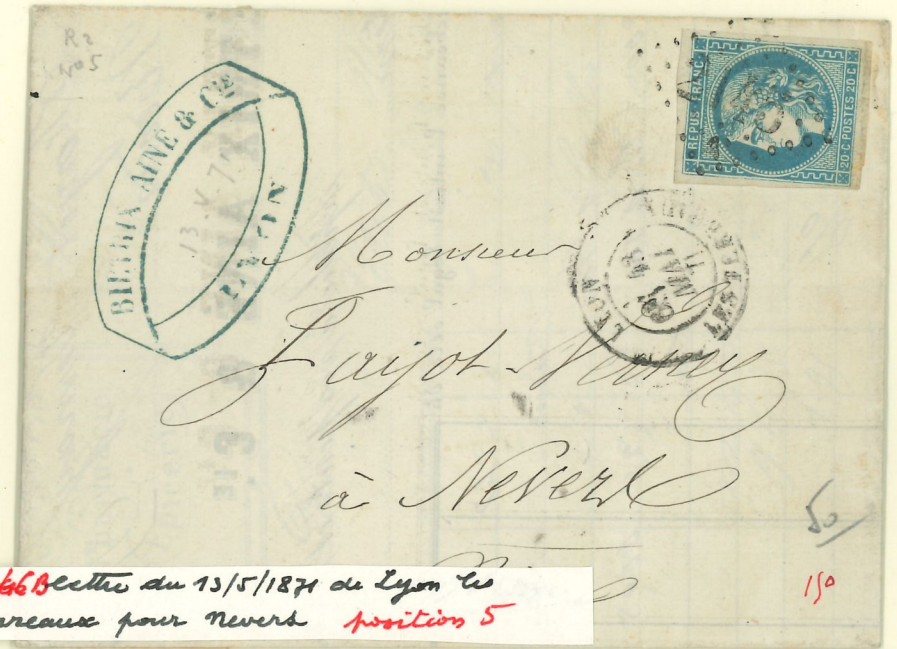 R2
N° 5
AINE & CIE
LYON
13-V-71
REPUB. FRANC.
20 C. POSTES 20 C.
LYON LES TERREAUX
MAI
71
Monsieur
à Nevers
50
150
46B lettre du 13/5/1871 de Lyon les
rreaux pour Nevers position 5